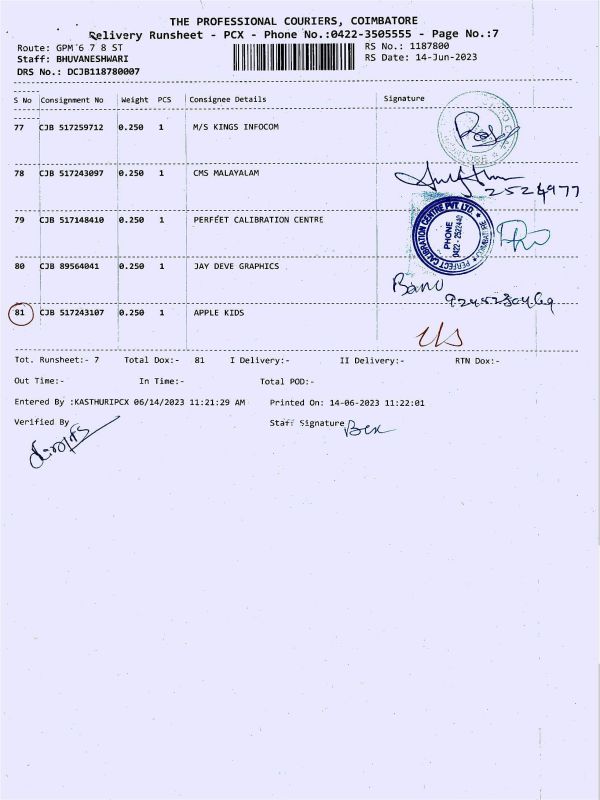 THE PROFESSIONAL COURIERS, COIMBATORE
Delivery Runsheet - PCX - Phone No.:0422-3505555 - Page No.:7
Route: GPM 6 7 8 ST RS No.: 1187800
Staff: BHUVANESHWARI RS Date: 14-Jun-2023
DRS No.: DCJB118780007
S No Consignment No Weight PCS Consignee Details Signature
77 CJB 517259712 0.250 1 M/S KINGS INFOCOM
78 CJB 517243097 0.250 1 CMS MALAYALAM
2524977
79 CJB 517148410 0.250 1 PERFEET CALIBRATION CENTRE
PERFECT CALIBRATION CENTRE PVT. LTD.
PHONE
0422 - 2522440
80 CJB 89564041 0.250 1 JAY DEVE GRAPHICS
Banu
81 CJB 517243107 0.250 1 APPLE KIDS
Tot. Runsheet:- 7 Total Dox:- 81 I Delivery:- II Delivery:- RTN Dox:-
Out Time:- In Time:- Total POD:-
Entered By :KASTHURIPCX 06/14/2023 11:21:29 AM Printed On: 14-06-2023 11:22:01
Verified By Staff Signature